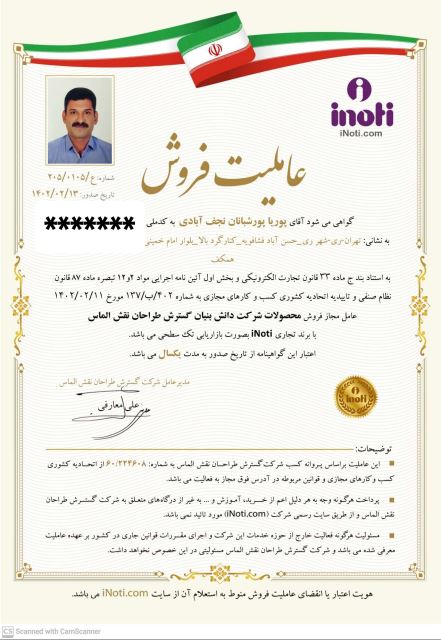 inoti
iNoti.com
عاملیت فروش
شماره: ع/۲۰۵/۰۱۰۵
تاریخ صدور: ۱۴۰۲/۰۲/۱۳
گواهی می شود آقای پوریا پورشبانان نجف آبادی به کدملی *******
به نشانی: تهران-ری-شهر ری_حسن آباد فشافویه_کنارگرد بالا_بلوار امام خمینی
همکف
به استناد بند ج ماده ۳۳ قانون تجارت الکترونیکی و بخش اول آئین نامه اجرایی مواد ۲و۱۲ تبصره ماده ۸۷ قانون
نظام صنفی و تاییدیه اتحادیه کشوری کسب و کارهای مجازی به شماره ۴۰۲/ب/۱۳۷ مورخ ۱۴۰۲/۰۲/۱۱
عامل مجاز فروش محصولات شرکت دانش بنیان گسترش طراحان نقش الماس
با برند تجاری iNoti بصورت بازاریابی تک سطحی می باشد.
اعتبار این گواهینامه از تاریخ صدور به مدت یکسال می باشد.
مدیرعامل شرکت گسترش طراحان نقش الماس
علی معارفی
inoti
توضیحات:
این عاملیت براساس پروانه کسب شرکت گسترش طراحان نقش الماس به شماره: ۶۰/۲۲۴۶۰۸ از اتحادیه کشوری
کسب و کارهای مجازی و قوانین مربوطه در آدرس فوق مجاز به فعالیت می باشد.
پرداخت هرگونه وجه به هر دلیل اعم از خرید، آموزش و ... به غیر از درگاههای متعلق به شرکت گسترش طراحان
نقش الماس و از طریق سایت رسمی شرکت (iNoti.com) مورد تائید نمی باشد.
مسئولیت هرگونه فعالیت خارج از حوزه خدمات این شرکت و اجرای مقررات قوانین جاری در کشور بر عهده عاملیت
معرفی شده می باشد و شرکت گسترش طراحان نقش الماس مسئولیتی در این خصوص نخواهد داشت.
هویت اعتبار یا انقضای عاملیت فروش منوط به استعلام آن از سایت iNoti.com می باشد.
CS Scanned with CamScanner